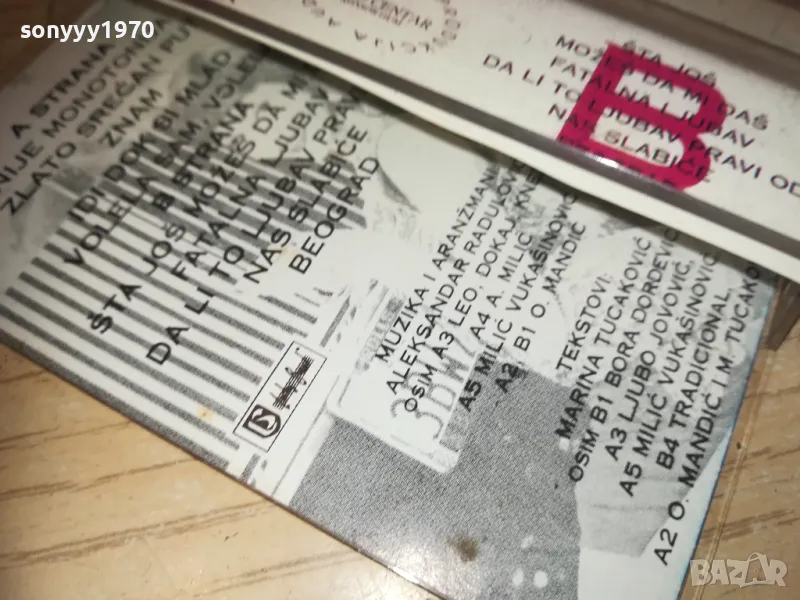 sonyyy1970
A STRANA
NIJE MONOTONIJA
ZLATO SREĆAN PUT
ZNAM
IDI DOK BI MLAD
VOLELA SAM, VOLELA
B STRANA
ŠTA JOŠ MOŽEŠ DA MI
FATALNA LJUBAV
DA LI TO LJUBAV PRAVI
NAS SLABIĆE
BEOGRAD
MUZIKA I ARANŽMANI
ALEKSANDAR RADULOVIĆ
OSIM A3 LEO, DOKAJ, KNE
A4 A. MILIĆ
A5 MILIĆ VUKAŠINOVIĆ
A2, B1 O. MANDIĆ
TEKSTOVI:
MARINA TUCAKOVIĆ
OSIM B1 BORA ĐORĐEVIĆ
A3 LJUBO JOVOVIĆ,
A5 MILIĆ VUKAŠINOVIĆ
B4 TRADICIONAL
A2 O. MANDIĆ I M. TUCAKO
CENTAR
B
ŠTA JOŠ
MOŽEŠ DA MI DAŠ
FATALNA LJUBAV
DA LI TO LJUBAV PRAVI OD
NAS SLABIĆE
BAZAR